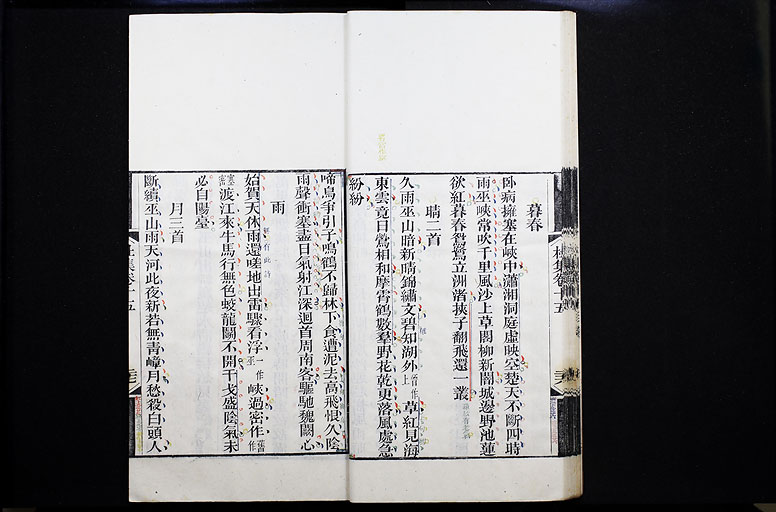 暮春
臥病擁塞在峽中瀟湘洞庭虛映空楚天不斷四時
雨巫峽常吹千里風沙上草閣柳新闇城邊野池蓮
欲紅暮春鴛鷺立洲渚挾子翻飛還一叢
晴二首
久雨巫山暗新晴錦繡文碧知湖外草紅見海
東雲竟日鶯相和摩霄鶴數羣野花乾更落風處急
紛紛
啼烏爭引子鳴鶴不歸林下食遭泥去高飛恨久陰
雨聲衝塞盡日氣射江深迴首周南客驅馳魏闕心
雨
始賀天休雨還嗟地出雷驟看浮峽過密作
渡江來牛馬行無色蛟龍鬭不開干戈盛陰氣未
必自陽臺
月三首
斷續巫山雨天河此夜新若無青嶂月愁殺白頭人
杜集卷十五